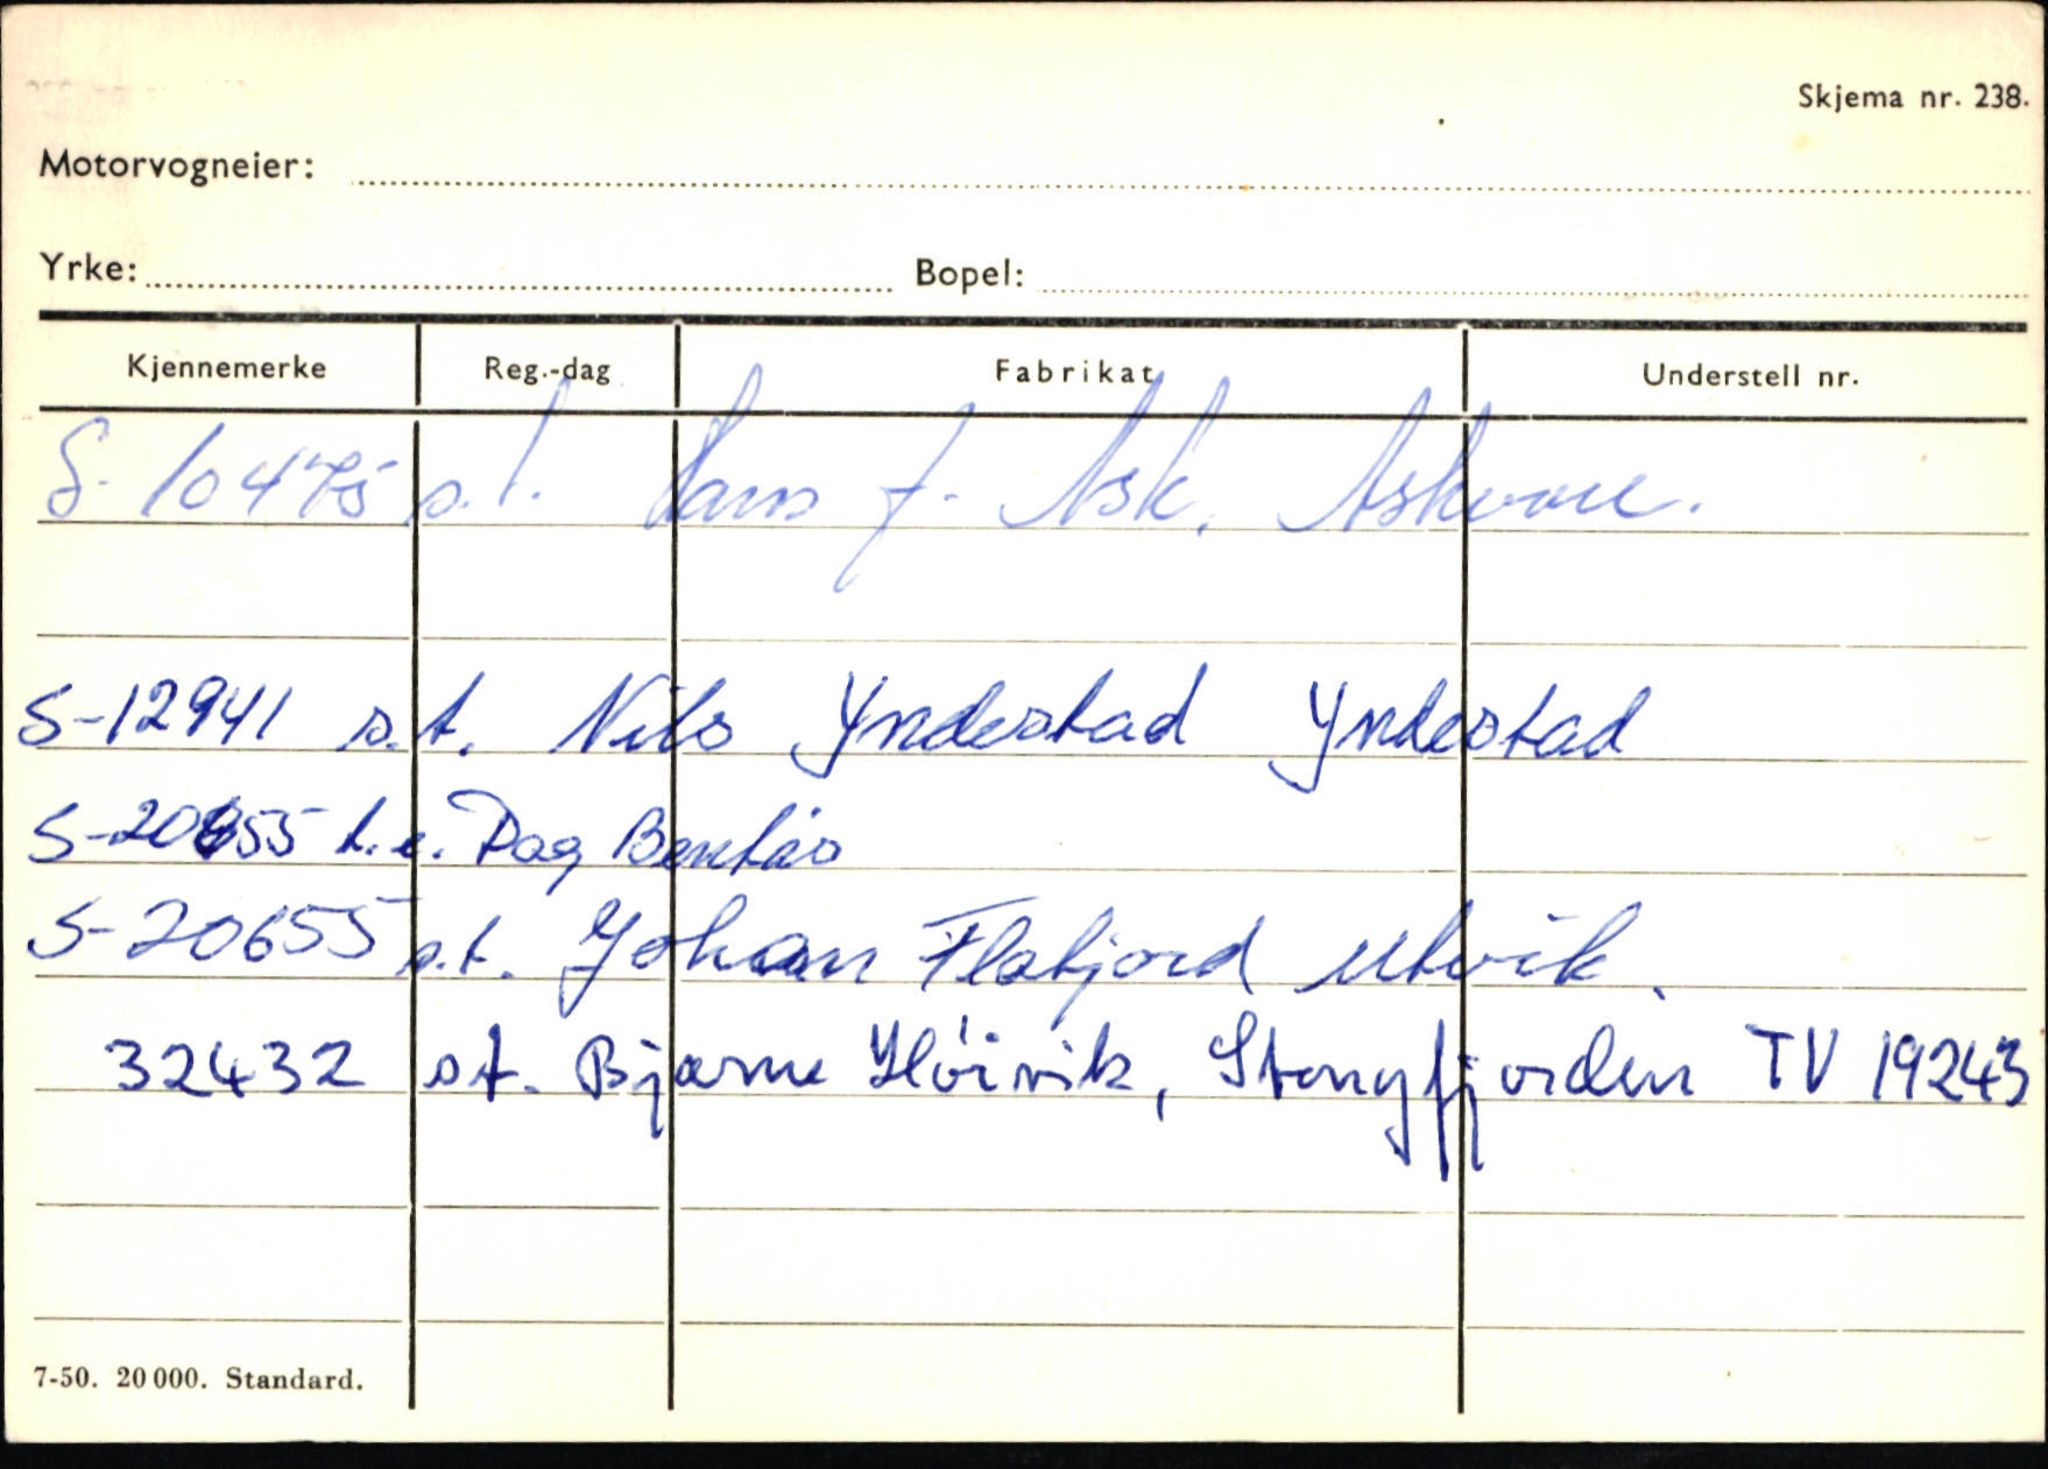 Skjema nr. 238.
Motorvogneier:
Yrke: Bopel:
Kjennemerke Reg.-dag Fabrikat Understell nr.
S-10475 s.t. Hans J. Ask. Askvoll.
S-12941 s.t. Nils Yndestad Yndestad
S-20655 t.e. Dag
S-20655 s.t. Johan Flatjord Utvik.
32432 st. Bjarne Höivik, Stongfjorden TV 19243
7-50. 20 000. Standard.